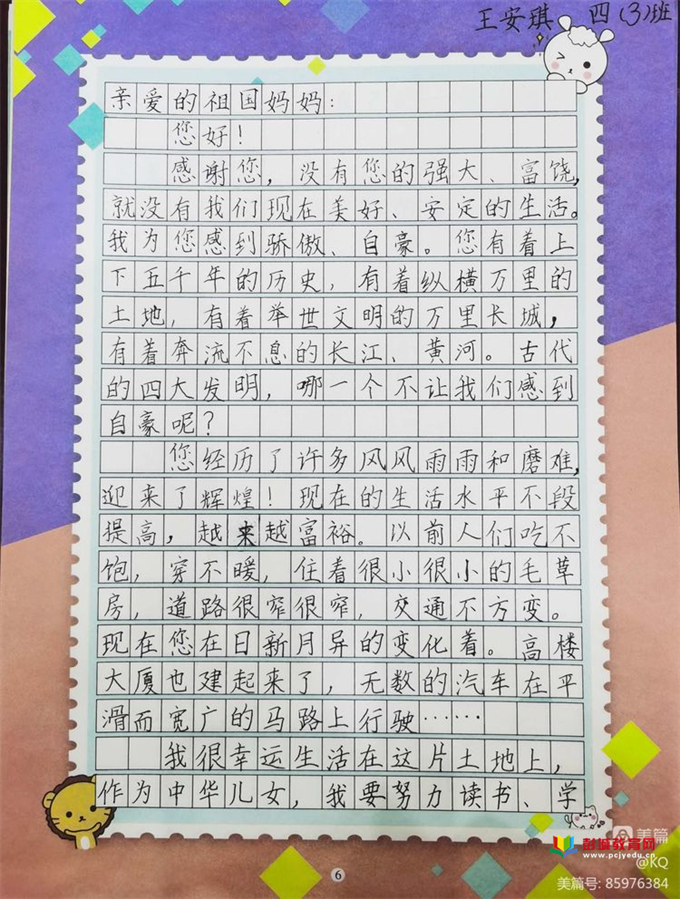 王安琪 四(3)班
亲爱的祖国妈妈：
您好！
感谢您，没有您的强大、富饶，
就没有我们现在美好、安定的生活。
我为您感到骄傲、自豪。您有着上
下五千年的历史，有着纵横万里的
土地，有着举世文明的万里长城，
有着奔流不息的长江、黄河。古代
的四大发明，哪一个不让我们感到
自豪呢？
您经历了许多风风雨雨和磨难，
迎来了辉煌！现在的生活水平不段
提高，越来越富裕。以前人们吃不
饱，穿不暖，住着很小很小的毛草
房，道路很窄很窄，交通不方变。
现在您在日新月异的变化着。高楼
大厦也建起来了，无数的汽车在平
滑而宽广的马路上行驶……
我很幸运生活在这片土地上，
作为中华儿女，我要努力读书、学
6
美篇
@KQ
彭城教育网
www.pcjyedu.cn
美篇号: 85976384